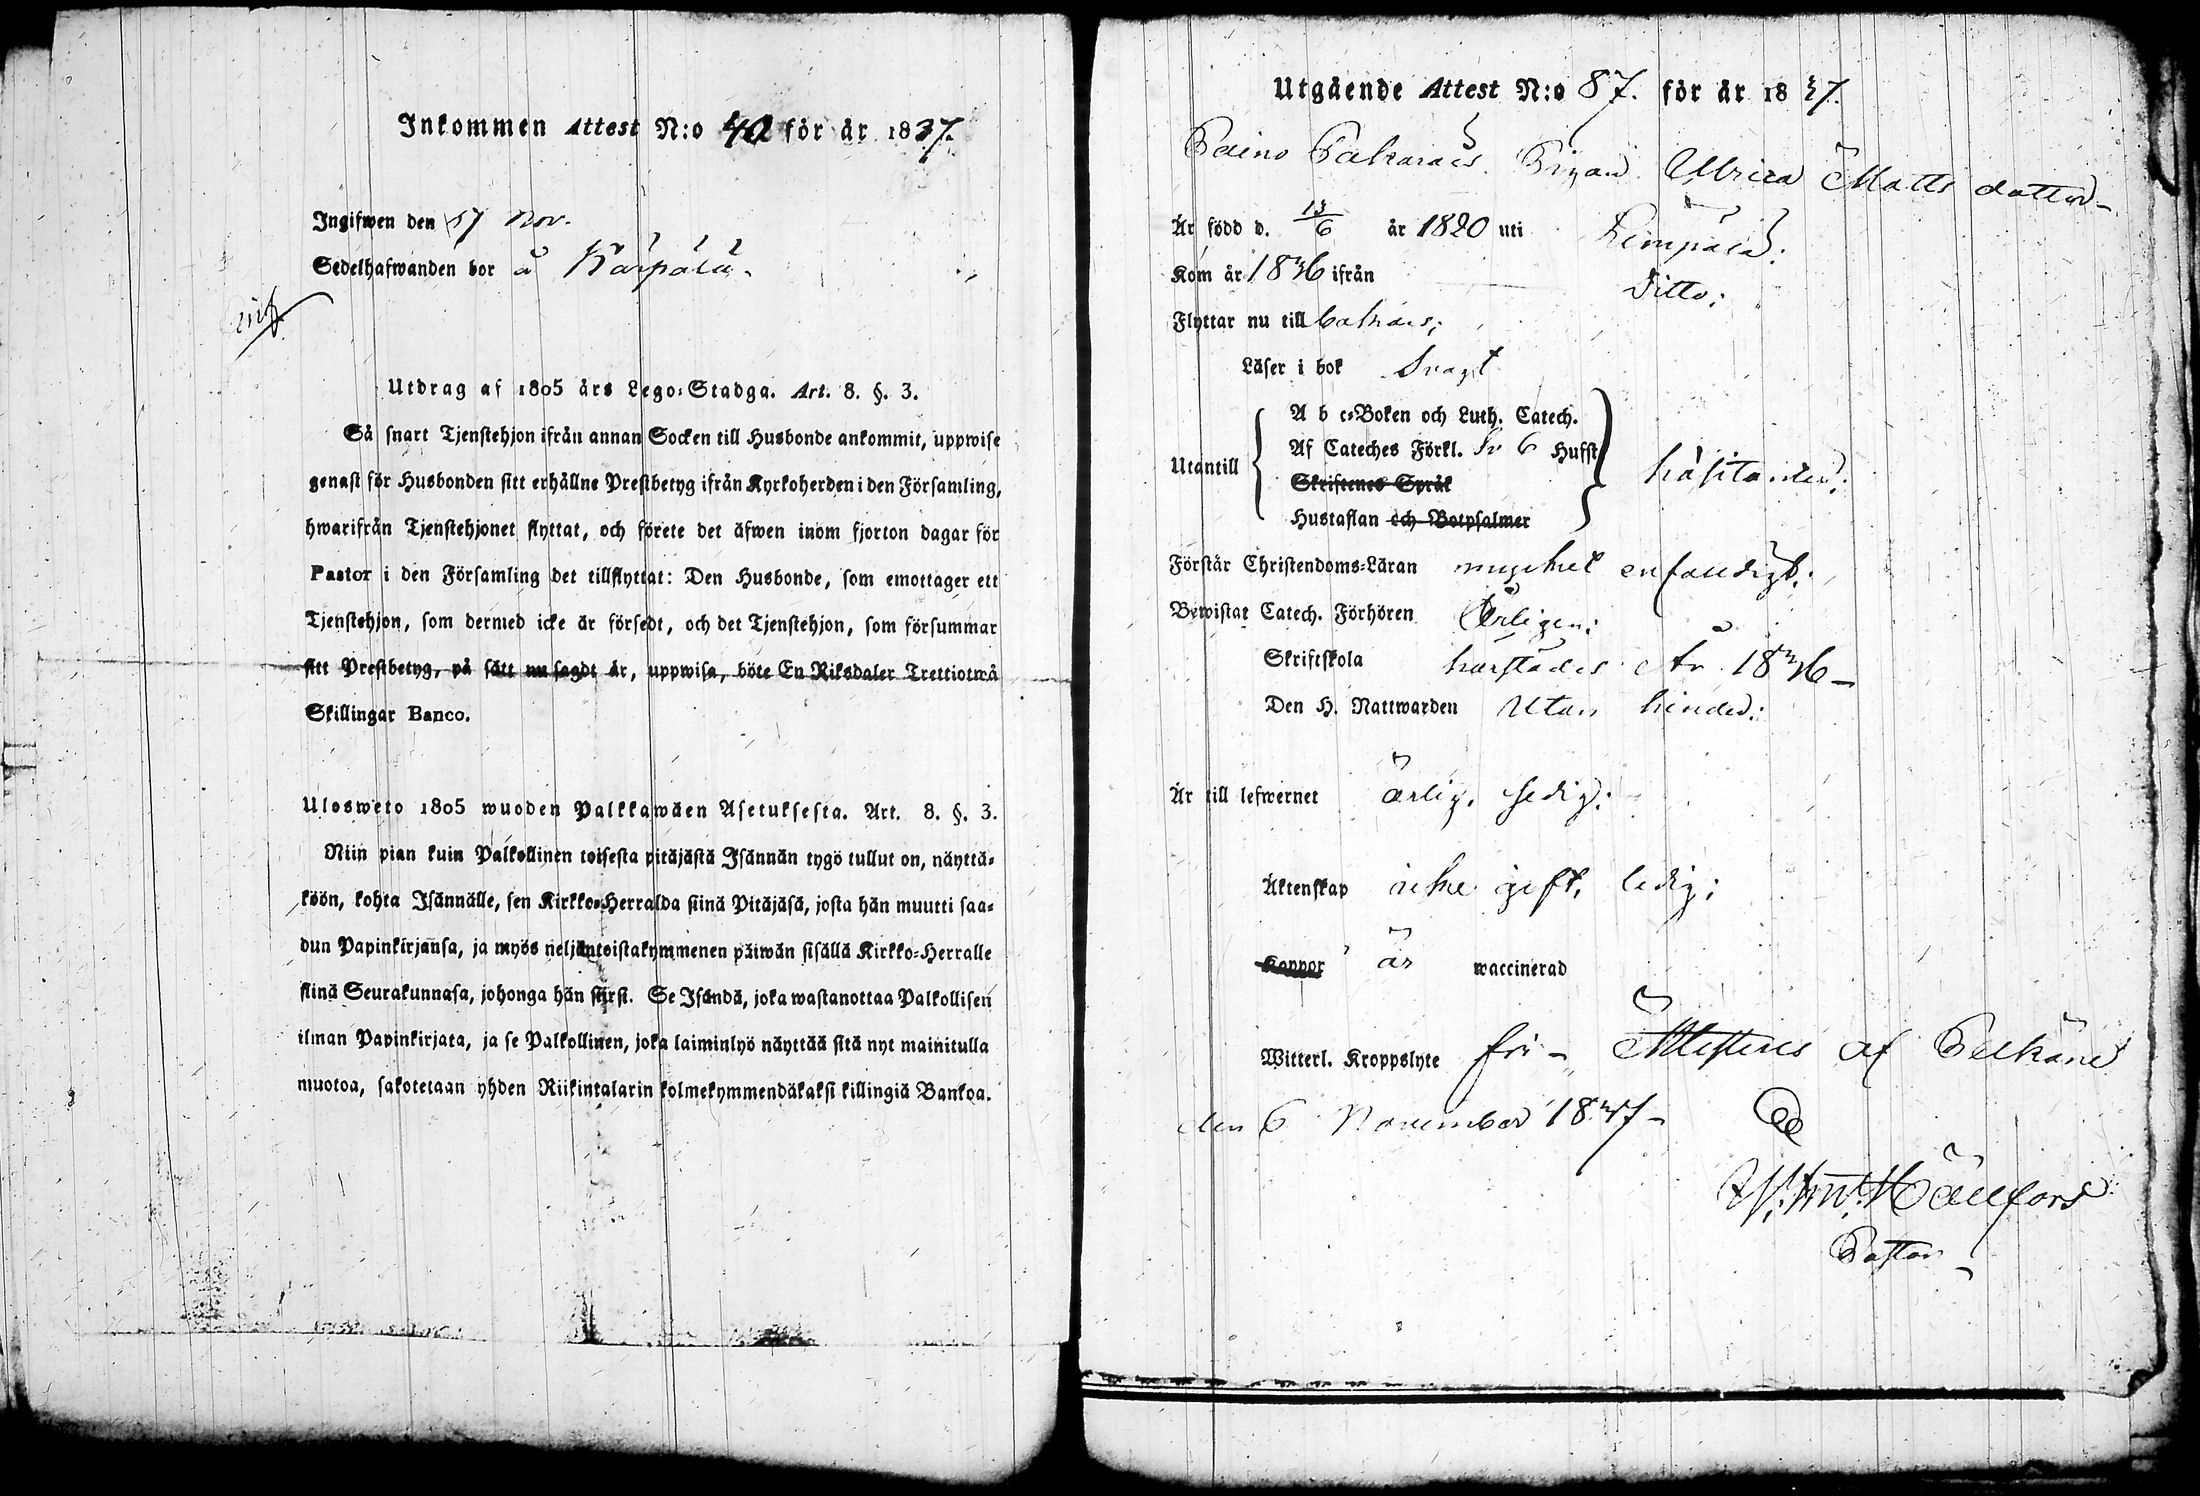 Inkommen Attest N:o 40 för år 1837.
Ingifwen den 17 Nov.
Sedelhafwanden bor å Karpala.
Utdrag af 1805 års Lego-Stadga. Art. 8. §. 3.
Så snart Tjenstehjon ifrån annan Socken till Husbonde ankommit, uppwise
genast för Husbonden sitt erhållne Prestbetyg ifrån Kyrkoherden i den Församling,
hwarifrån Tjenstehjonet flyttat, och förete det äfwen inom fjorton dagar för
Pastor i den Församling det tillflyttat: Den Husbonde, som emottager ett
Tjenstehjon, som dermed icke är försedt, och det Tjenstehjon, som försummar
sitt Prestbetyg, på sätt nu sagdt är, uppwisa, böte En Riksdaler Trettiotwå
Skillingar Banco.
Ulosweto 1805 wuoden Palkkawäen Asetuksesta. Art. 8. §. 3.
Niin pian kuin Palkollinen toisesta pitäjästä Isännän tygö tullut on, näyttä-
köön, kohta Isännälle, sen Kirkko-Herralda siinä Pitäjäsä, josta hän muutti saa-
dun Papinkirjansa, ja myös neljäntoistakymmenen päiwän sisällä Kirkko-Herralle
siinä Seurakunnasa, johonga hän siirsi. Se Isändä, joka wastanottaa Palkollisen
ilman Papinkirjata, ja se Palkollinen, joka laiminlyö näyttää sitä nyt mainitulla
muotoa, sakotetaan yhden Riikintalarin kolmekymmendäkaksi killingiä Bankoa.
Utgående Attest N:o 87. för år 1837.
Pigan Ulrica Matts dotter
Är född d. 13/6 år 1820 uti Lempälä;
Kom år 1836 ifrån Ditto;
Flyttar nu till Sahalax;
Läser i bok Svagt
Utantill
A b c-Boken och Luth. Catech.
Af Cateches Förkl. 6 Hufst
Skriftenes Språk
Hustaflan och Botpsalmer
häsitander;
Förstår Christendoms-Läran mycket enfaldigt;
Bewistat Catech. Förhören Årligen;
Skriftskola härstädes År 1836
Den H. Nattwarden Utan hinder;
Är till lefwernet ärlig, sedig;
Äktenskap icke gift, ledig;
Koppor är waccinerad
Witterl. Kroppslyte fri Attesteres af Pelkäne
den 6 November 1837
Hällfors
Pastor